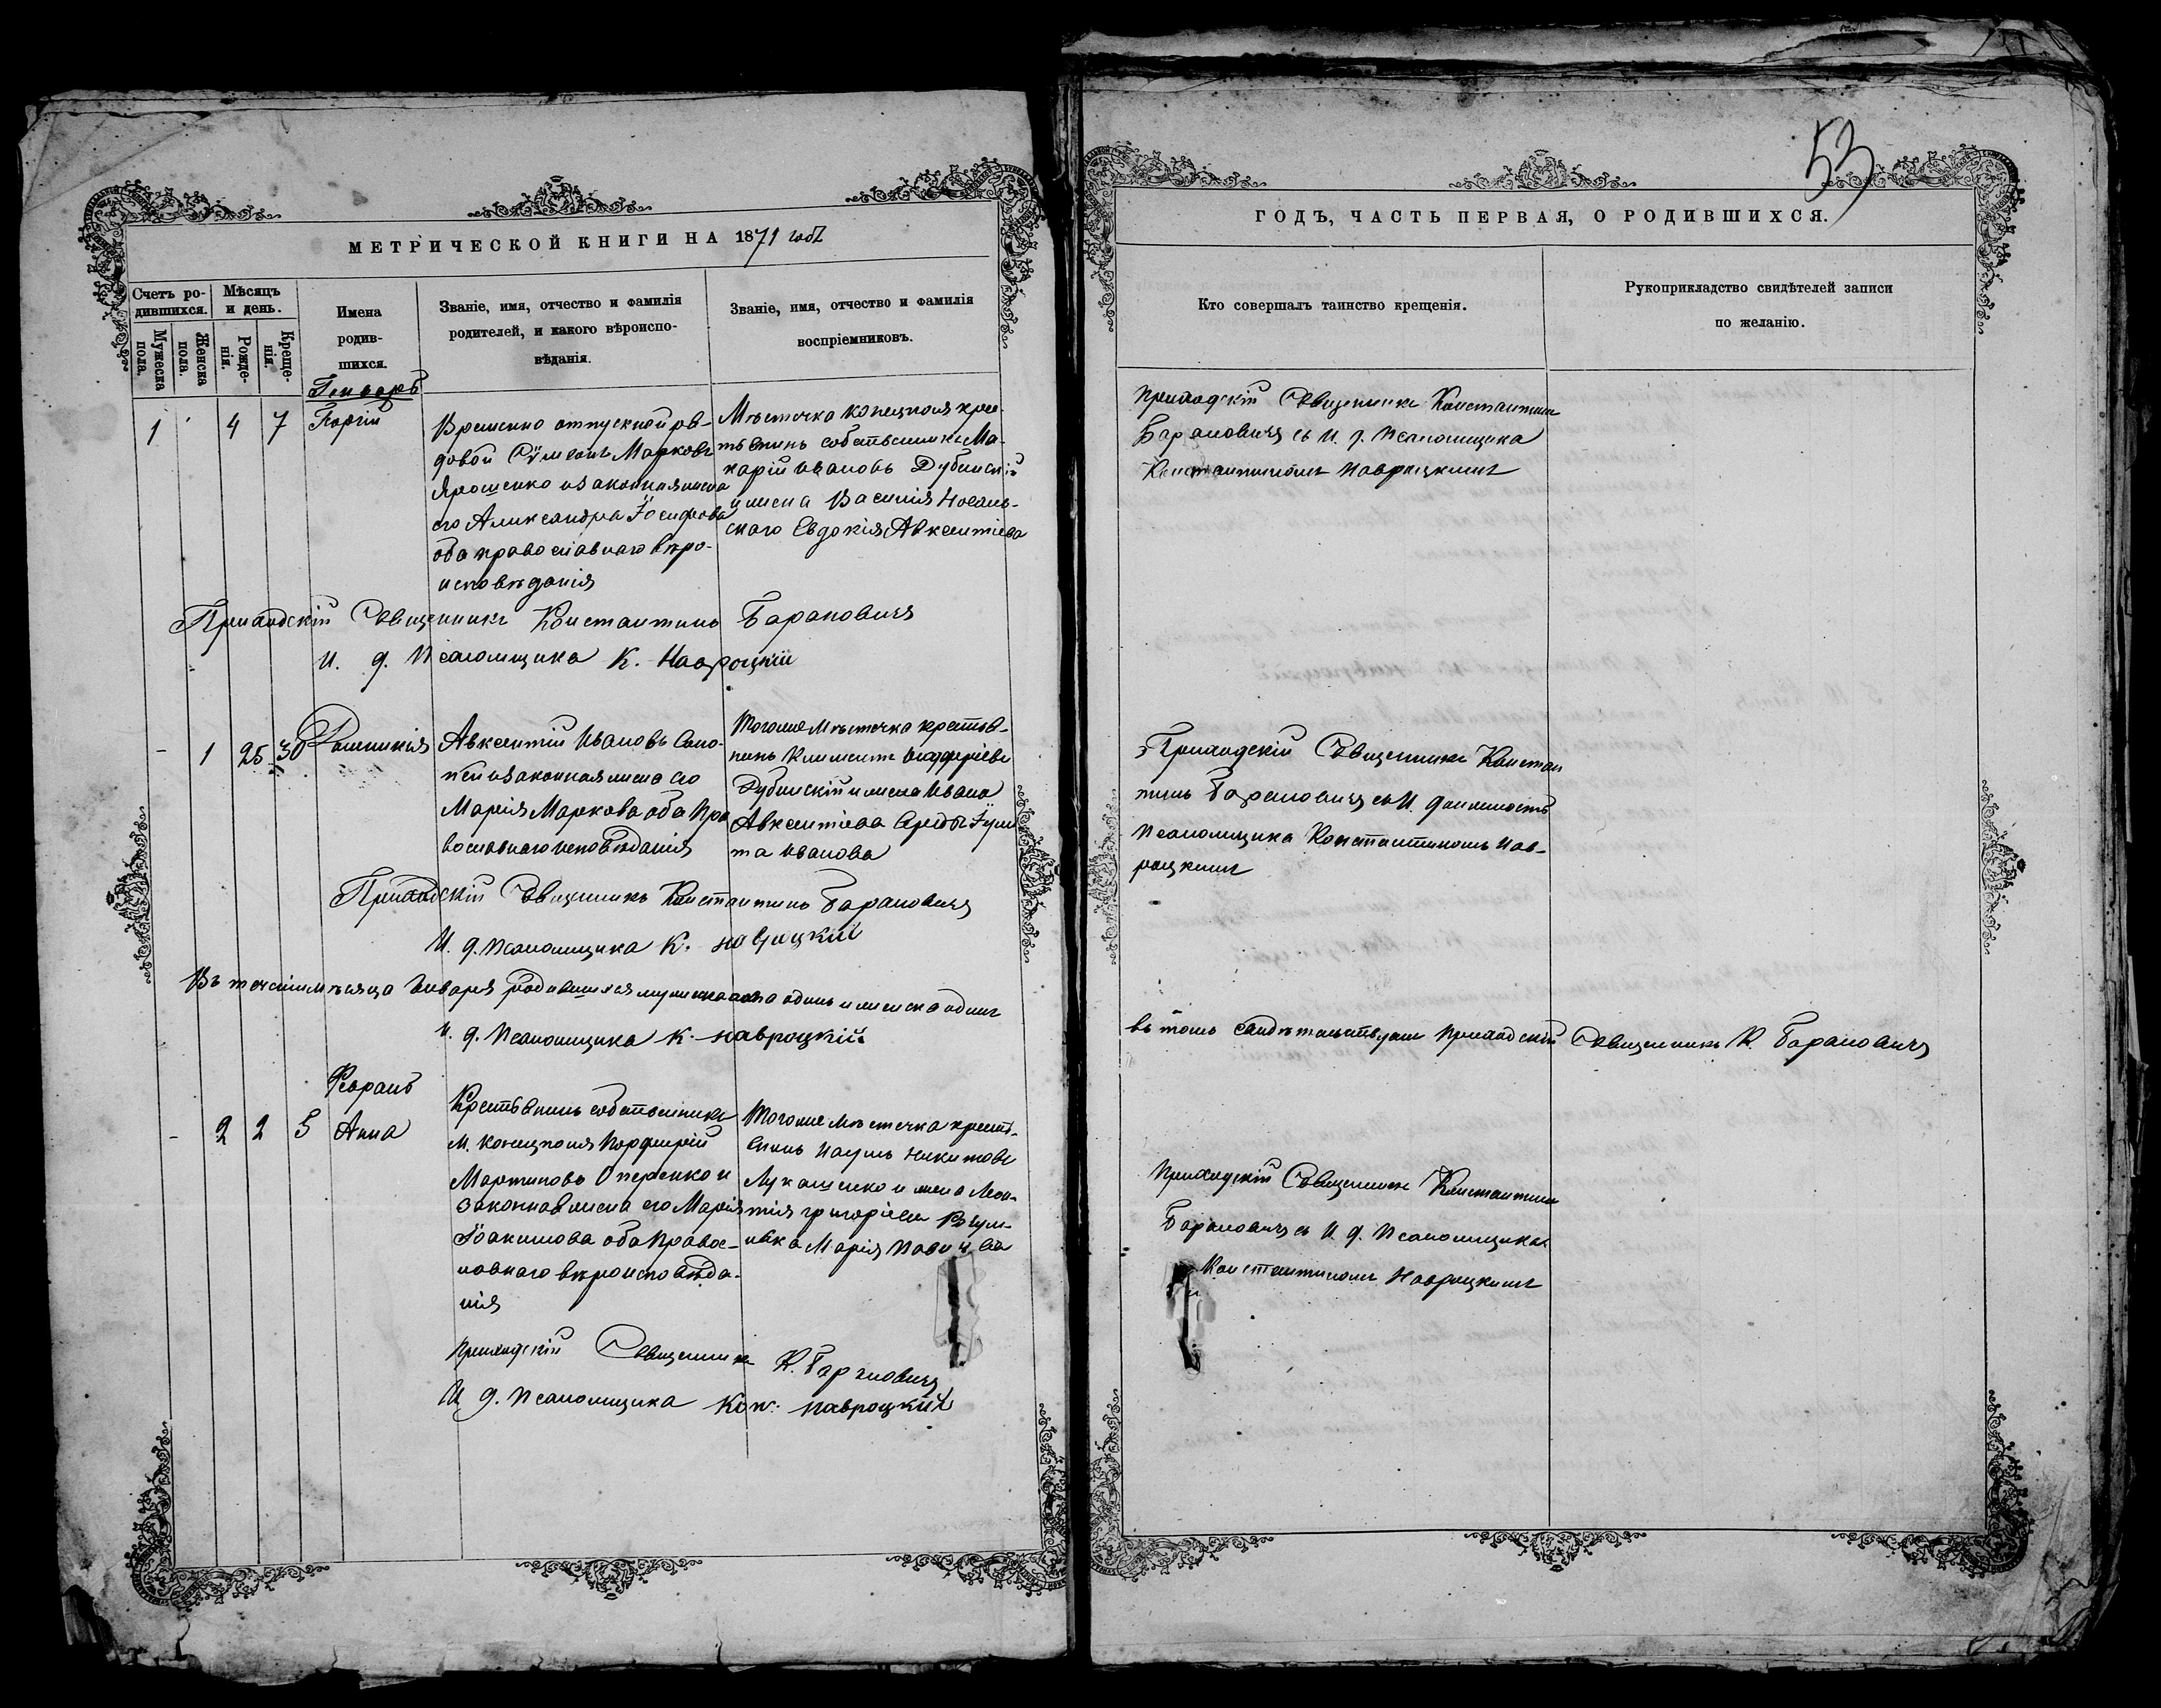 МЕТРИЧЕСКОЙ КНИГИ НА 1871 годъ
Счетъ ро-
дившихся.
Мѣсяцъ
и день.
Мужеска
пола.
Женска
пола.
Рожде-
нія.
Креще-
нія.
Имена
родив-
шихся.
Званіе, имя, отчество и фамилія
родителей, и какого вѣроиспо-
вѣданія.
Званіе, имя, отчество и фамилія
воспріемниковъ.
Генварь
1 4 7 Георгій
Временно отпускной ря-
довой Сѵмеонъ Марковъ
Ярошенко и законная жена
его Александра Іосифова
оба православнаго вѣро-
исповѣданія
Мѣстечка Конецполя крес-
тьянинъ собственникъ Ма-
карій Ивановъ Дубинскій
и жена Василія
Евдокія Авксентіева
Приходскій Священникъ Константинъ Барановичъ
И. д. Псаломщика К. Навроцкій
- 1 25 30
Авксентій Ивановъ
и законная жена его
Марія Маркова оба пра
вославнаго исповѣданія
Тогоже Мѣстечка крестья-
нинъ Климентъ
Дубинскій и жена Ивана
Авксентіева
та Иванова
Приходскій Священникъ Константинъ Барановичъ
И. д. Псаломщика К. Навроцкій
Въ теченіи мѣсяца Января родившихся мужеска пола одинъ и женска одинъ
И. д. Псаломщика К. Навроцкій
Февраль
- 2 2 5 Анна
Крестьянинъ собственникъ
М. Конецполя Порфирій
Мартиновъ
законная жена его Марія
Іоакимова оба правос-
лавнаго вѣроисповѣда-
нія
Тогоже Мѣстечка кресть-
янинъ Наумъ Никитовъ
Лукашенко и жена Леон-
тія Григоріева
Марія
Приходскій Священникъ К. Барановичъ
И д. Псаломщика Кон. Навроцкій
53
ГОДЪ, ЧАСТЬ ПЕРВАЯ, О РОДИВШИХСЯ.
Кто совершалъ таинство крещенія.
Рукоприкладство свидѣтелей записи
по желанію.
Приходскій Священникъ Константинъ
Барановичъ съ И. д. Псаломщика
Константиномъ Навроцкимъ
Приходскій Священникъ Констан
тинъ Барановичъ съ И. должность
Псаломщика Константиномъ Нав-
роцкимъ
въ томъ свидѣтельствуемъ Приходскій Священникъ К. Барановичъ
Приходскій Священникъ Константинъ
Барановичъ съ И д. Псаломщика
Константиномъ Навроцкимъ